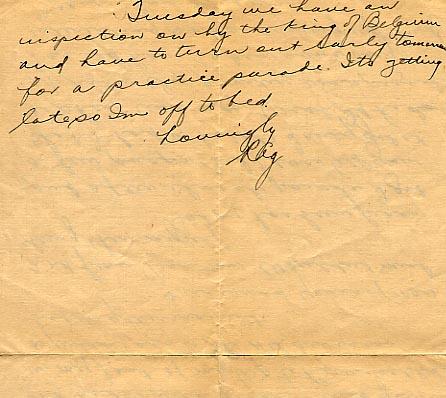 Tuesday we have an
inspection on by the King of Belgium
and have to turn out early tomorrow
for a practice parade. Its getting
late so Im off to bed.
Lovingly
Reg